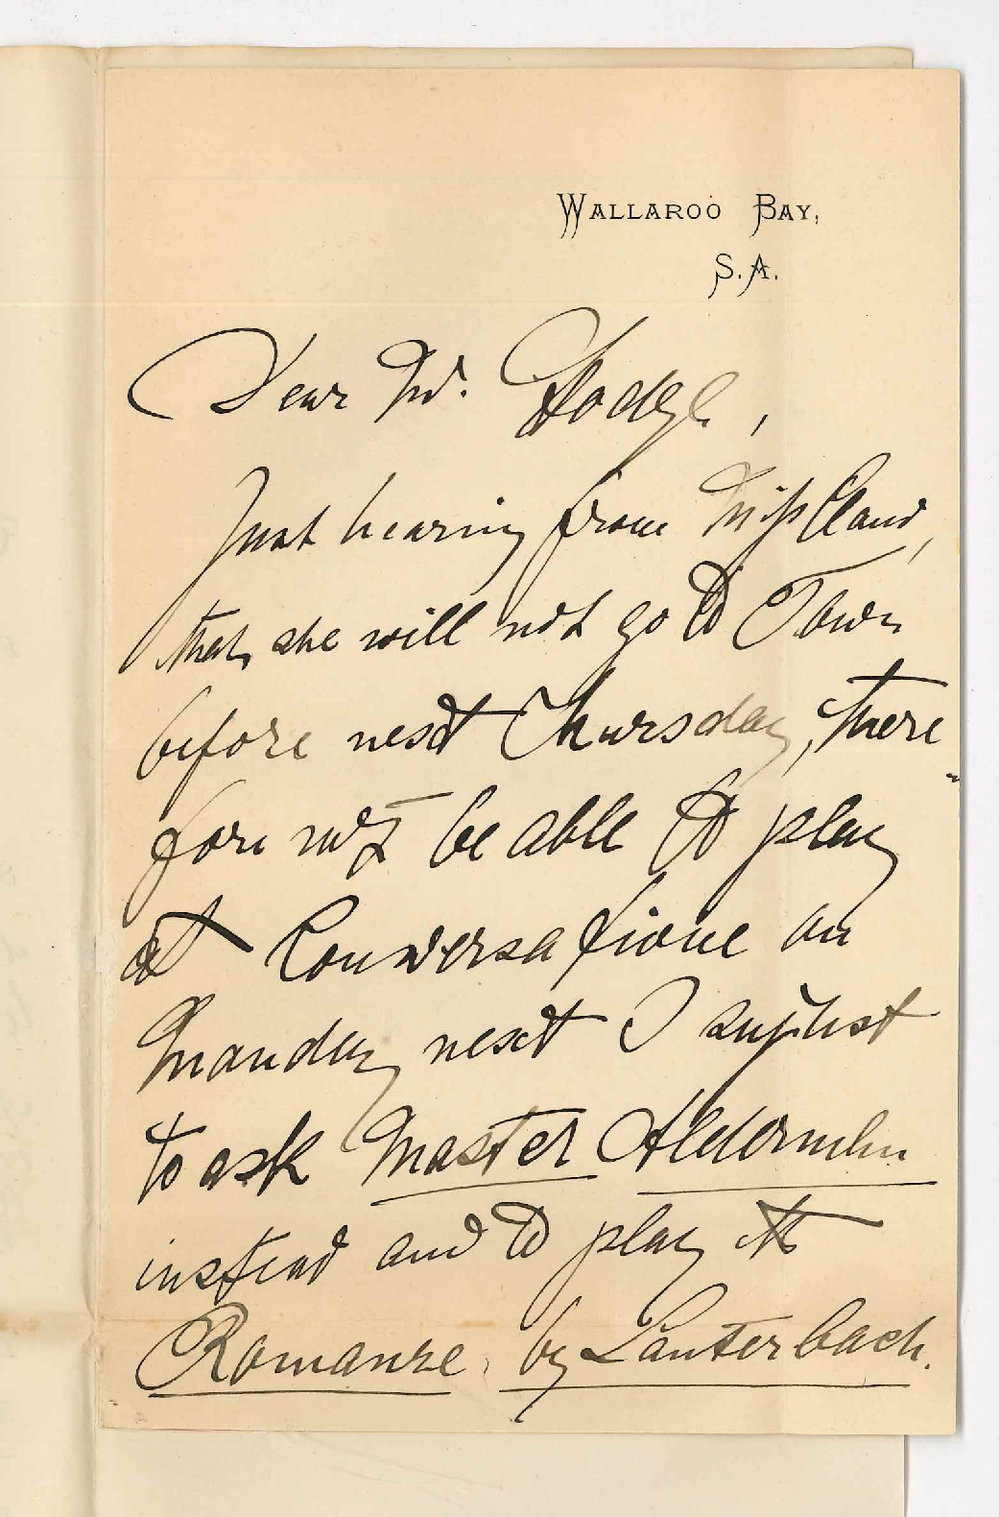 WALLAROO BAY,
S.A.
Dear Mr. Hodge,
Just hearing from Miss
that she will not go to Town
before next Thursday, there
fore not be able to play
at Conversatione on
Monday next I suggest
to ask Master Alderman
instead and to play the
Romanze, by Lauterbach.